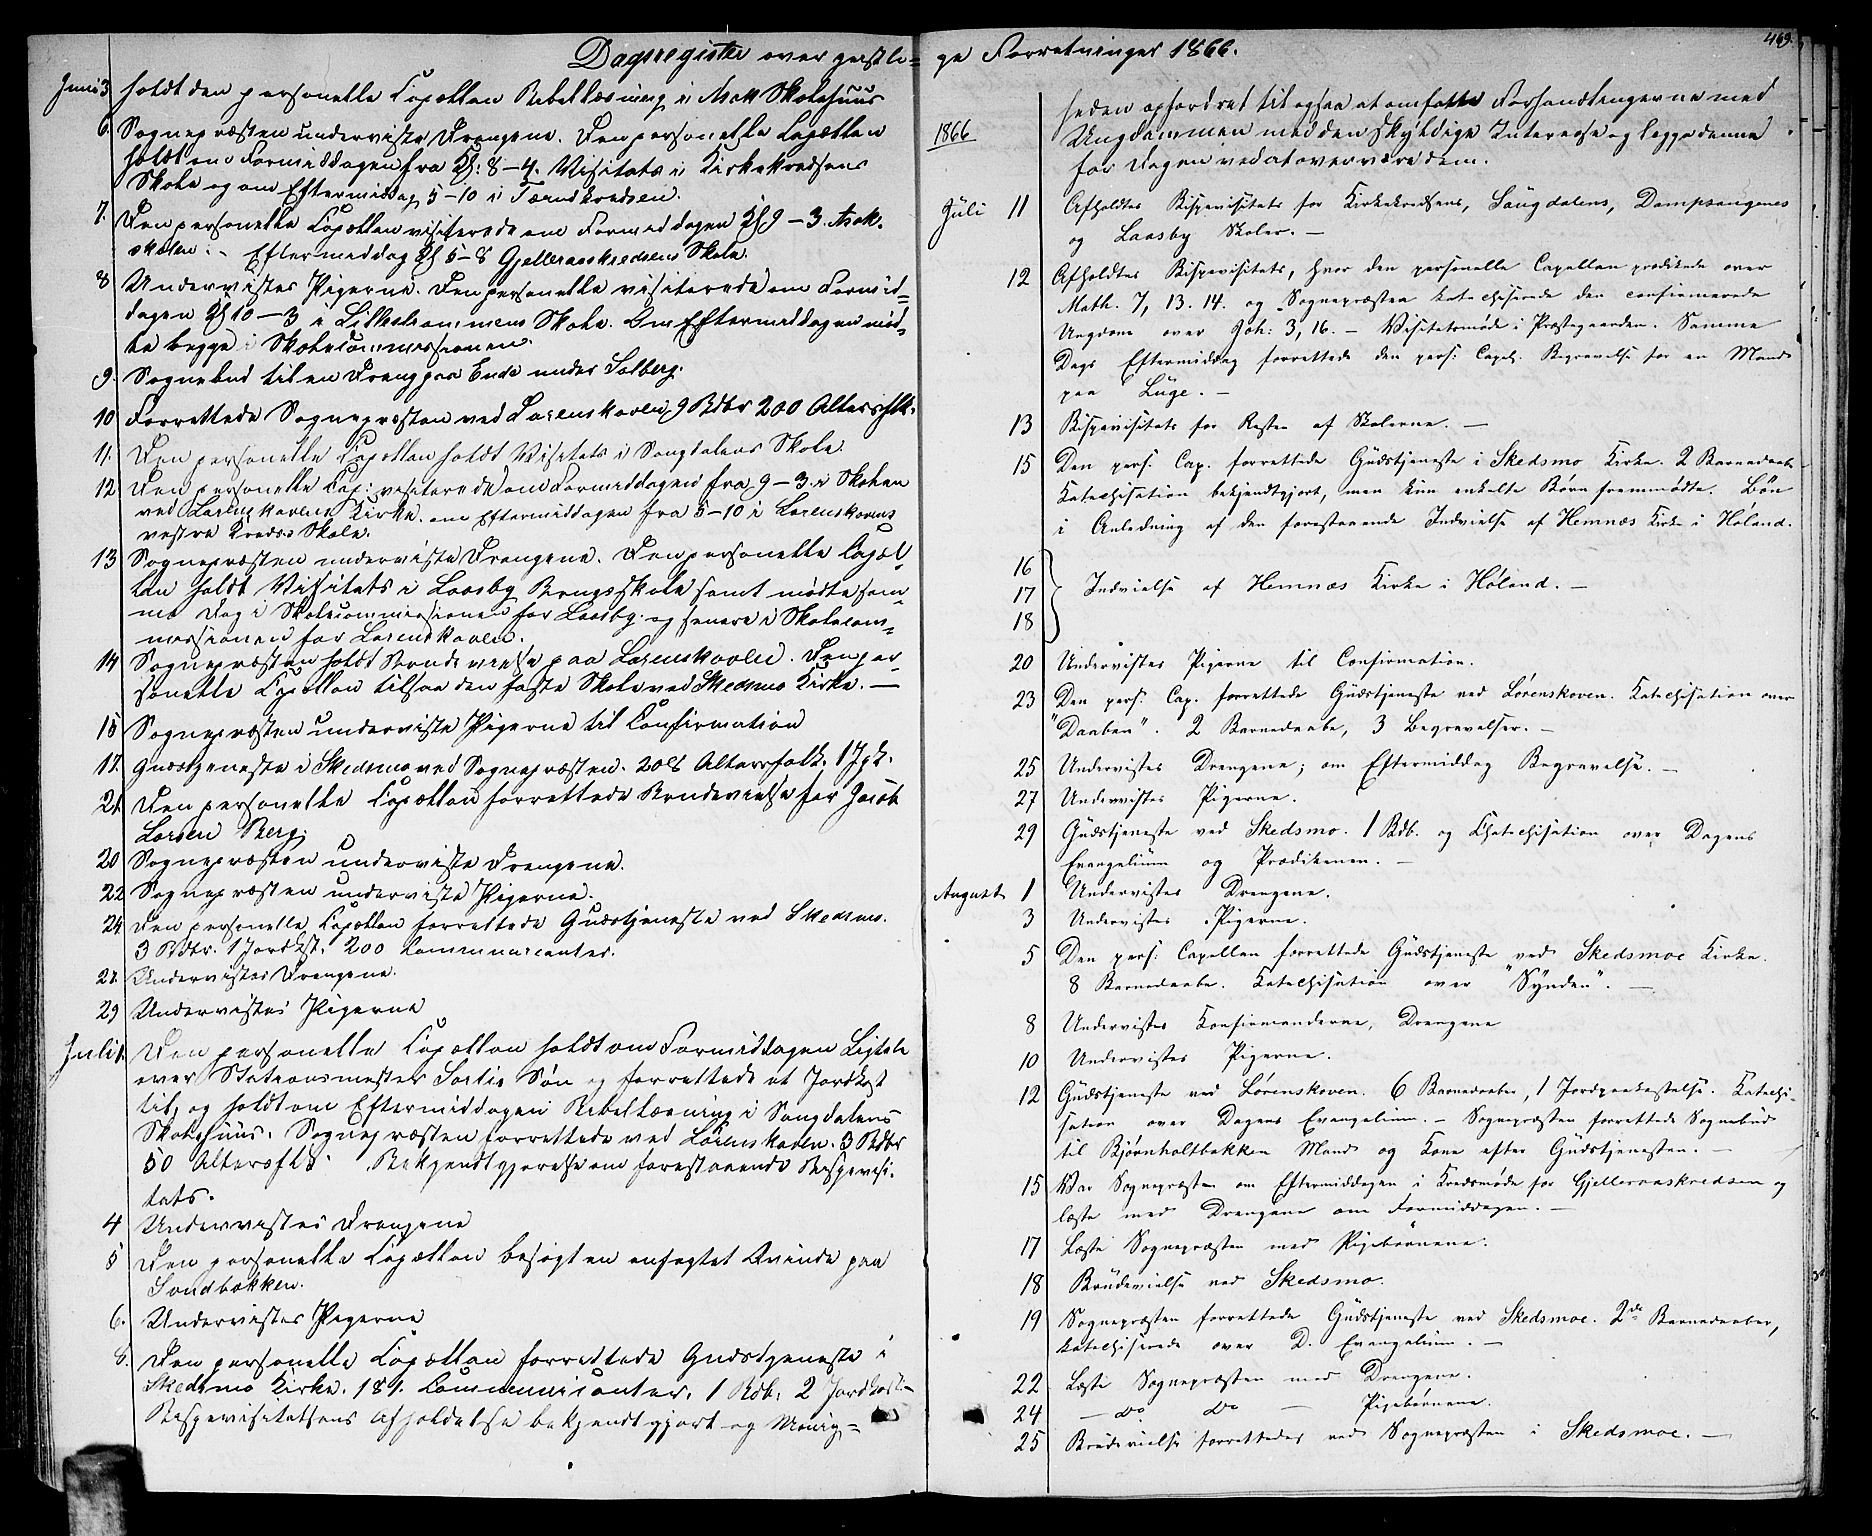 Dagsregister over geistli-
Juni 3 holdt den personelle Capellan Bibellæsning i Asak Skolehuus
6. Sognepræsten underviste Drengene. Den personelle Capellan
holdt om Formiddagen fra Kl: 8–4. Visitats i Kirkekredsens
Skole og om Eftermiddag 5–10 i Tærudkredsen.
7. Den personelle Capellan visiterede om Formiddagen Kl 9–3. Asak-
skolen. – Eftermiddag Kl 5–8 Gjelleraaskredsens Skole.
8 Undervistes Pigerne. Den personelle visiterede om Formid-
dagen Kl 10–3 i Lillestrømmens Skole. Om Eftermiddagen mød-
te begge i Skolecommissionen.
9. Sognebud til en Dreng paa Ende under Solberg.
10 Forrettede Sognepræsten ved Lørenskoven, 9 Bdbr 200 Altersflk.
11. Den personelle Capellan holdt Visitats i Sangdalens Skole.
12 Den personelle Cap: visiterede om Formiddagen fra 9–3 i Skolen
ved Lørenskovens Kirke. om Eftermiddagen fra 5–10 i Lørenskovens
vestre Kreds's Skole.
13 Sognepræsten underviste Drengene. Den personelle Capel-
lan holdt Visitats i Laasby Skole samt mødte sam-
me Dag i Skolecommissionen for Laasby og senere i Skolecom-
missionen for Lørenskoven.
14 Sognepræsten holdt Brudevielse paa Lørenskoven. Den per-
sonelle Capellan tilsaa den faste Skole ved Skedsmo Kirke. —
15 Sognepræsten underviste Pigerne til Confirmation
17. Gudstjeneste i Skedsmo ved Sognepræsten. 208 Altersfolk. 1 Jpk.
21 Den personelle Capellan forrettede Brudevielse for Jacob
Larsen Berg.
20 Sognepræsten underviste Drengene.
22 Sognepræsten underviste Pigerne.
24 Den personelle Capellan forrettede Gudstjeneste ved Skedsmo.
3 Bdbr. 1 Jordkst. 200 Communicanter.
27. Undervistes Drengene.
29 Undervistes Pigerne
Juli 1. Den personelle Capellan holdt om Formiddagen Ligtale
over Stationsmester Søn og forrettede et Jordkast
til, og holdt om Eftermiddagen Bibellæsning i Sangdalens
Skolehuus. Sognepræsten forrettede ved Lørenskoven. 3 Bdbr
50 Altersflk. Bekjendtgjørelse om forestaaende Bispevisi-
tats.
4 Undervistes Drengene
5 Den personelle Capellan besøgt en anfægtet Qvinde paa
Sandbakken.
6. Undervistes Pigerne
8. Den personelle Capellan forrettede Gudstjeneste i
Skedsmo Kirke. 189. Communicanter. 1 Bdb: 2 Jordkast.–
Bispevisitatsens Afholdelse bekjendtgjort og Menig-
ge Forretninger 1866.
469.
1866
heden opfordret til ogsaa at omfatte Forhandlingerne med
Ungdommen med den skyldige Interesse og lægge denne
for Dagen ved at overvære dem.
Juli 11 Afholdtes Bispevisitats for Kirkekredsens, Sangdalens, Dampsaugenes
og Laasby Skoler. —
12 Afholdtes Bispevisitats, hvor den personelle Capellan prædikede over
Math. 7, 13. 14. og Sognepræsten katechiserede den confirmerede
Ungdom over Joh: 3, 16. – Visitatsmøde i Præstegaarden. Samme
Dags Eftermiddag forrettede den pers: Capel. Begravelse for en Mand
paa Luge. –
13 Bispevisitats for Resten af Skolerne. —
15 Den pers. Cap. forrettede Gudstjeneste i Skedsmo Kirke. 2 Barnedaabe
Katechisation bekjendtgjort, men kun enkelte Børn fremmødte. Bøn
i Anledning af den forestaaende Indvielse af Hemnæs Kirke i Høland.
16
17 Indvielse af Hemnæs Kirke i Høland. —
18
20 Undervistes Pigerne til Confirmation.
23 Den pers. Cap. forrettede Gudstjeneste ved Lørenskoven. Katechisation over
"Daaben". 2 Barnedaabe, 3 Begravelser. —
25 Undervistes Drengene; om Eftermiddag Begravelse. —
27 Undervistes Pigerne.
29 Gudstjeneste ved Skedsmo. 1 Bdb. og Chatechisation over Dagens
Evangelium og Prædikenen. —
August 1 Undervistes Drengene.
3 Undervistes Pigerne.
5 Den pers: Capellan forrettede Gudstjeneste ved Skedsmoe Kirke.
8 Barnedaabe. Katechisation over "Synden". —
8 Undervistes Konfirmanderne, Drengene
10 Undervistes Pigerne.
12 Gudstjeneste ved Lørenskoven. 6 Barnedaaber, 1 Jordpaakastelse. Katechi-
sation over Dagens Evangelium. – Sognepræsten forrettede Sognebud
til Bjørnholtbakken Mand og Kone efter Gudstjenesten. —
15 Var Sognepræsten om Eftermiddagen i Kredsmøde for Gjelleraaskredsen og
læste med Drengene om Formiddagen. —
17 Læste Sognepræsten med Pigebørnene.
18 Brudevielse ved Skedsmo.
19 Sognepræsten forrettede Gudstjeneste ved Skedsmoe. 2de Barnedaaber,
katechiserede over D. Evangelium. —
22 Læste Sognepræsten med Drengene.
24 — do do — Pigebørnene.
25 Brudevielse forrettedes ved Sognepræsten i Skedsmoe. —